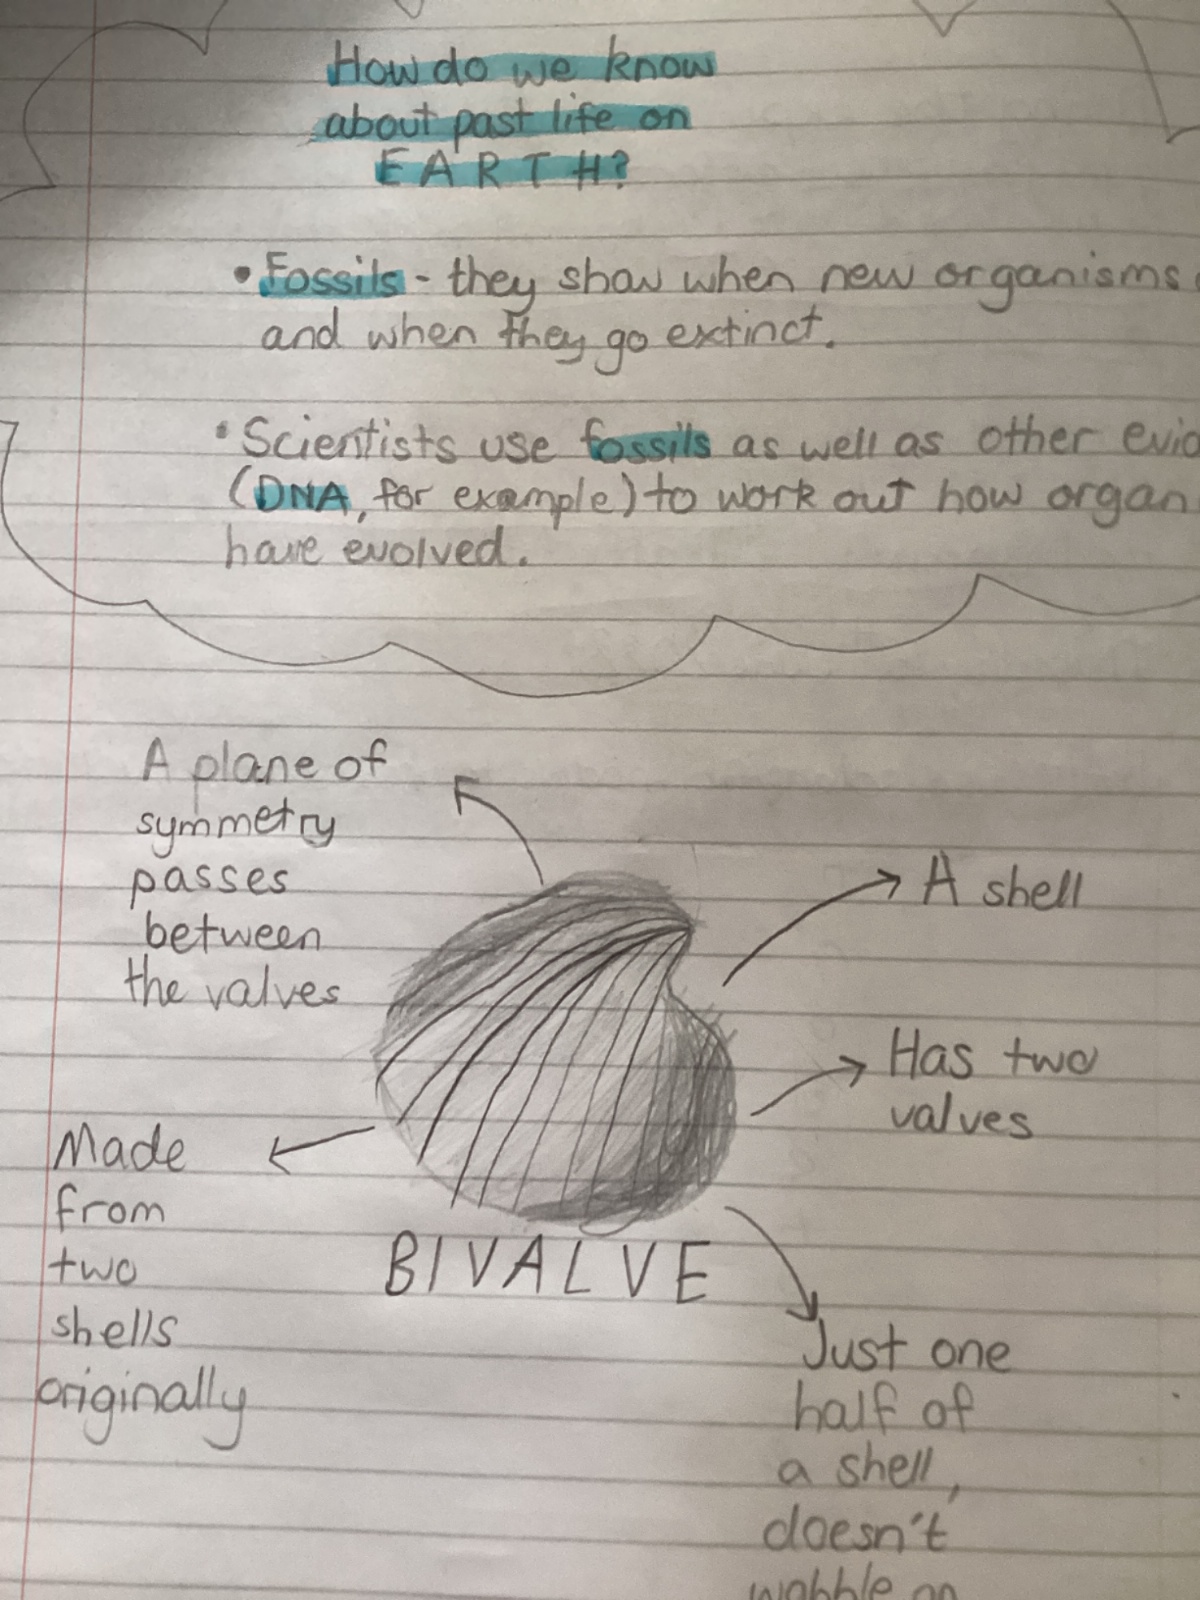 How do we know
about past life on
EARTH?
• Fossils - they show when new organisms
and when they go extinct.
• Scientists use fossils as well as other evid
(DNA, for example) to work out how organ
have evolved.
A plane of
symmetry
passes
between
the valves
A shell
Has two
valves
Made
from
two
shells
originally
BIVALVE
Just one
half of
a shell,
doesn't
wobble on